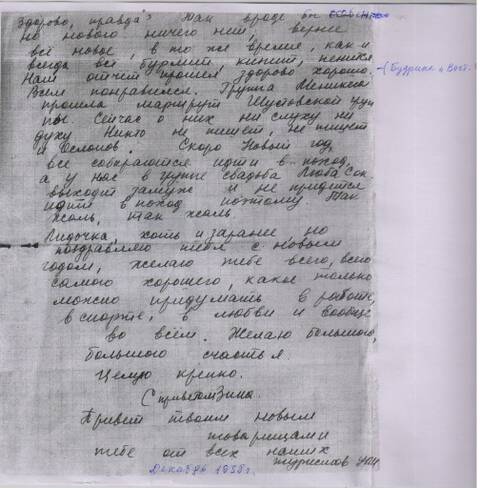 здорово, правда? Там вроде бы
но нового ничего нет, вернее
всё новое, в то же время, как и
всегда всё бурлит, кипит, пенится.
Наш отчёт прошёл здорово хорошо.
Всем понравился. Группа
прошла маршрут Шустовской груп
пы. Сейчас о них ни слуху ни
духу Никто не пишет, не пишет
и Ослопов. Скоро Новый год,
все собираются идти в поход,
а у нас в группе свадьба Люба Сок
выходит замуж и не придется
идти в поход поэтому Так
жаль, так жаль
Лидочка, хоть и заранее, но
поздравляю тебя с Новым
годом, желаю тебе всего, всего
самого хорошего, какое только
можно придумать в работе,
в спорте, в любви и вообще
во всём. Желаю большого,
большого счастья.
Целую крепко.
С приветом Зина.
Привет твоим новым
товарищам и
тебе от всех наших
туристов УПИ
Декабрь 1958г.